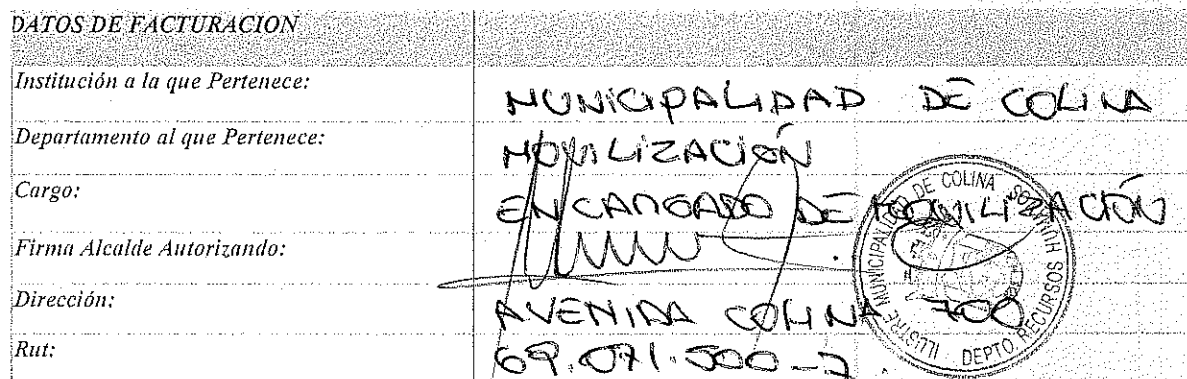 DATOS DE FACTURACION
Institución a la que Pertenece: MUNICIPALIDAD DE COLINA
Departamento al que Pertenece: MOVILIZACIÓN
Cargo: ENCARGADO DE MOVILIZACIÓN
Firma Alcalde Autorizando:
Dirección: AVENIDA COLINA 700
Rut: 69.071.500-7
ILUSTRE MUNICIPALIDAD DE COLINA
DEPTO. RECURSOS HUMANOS